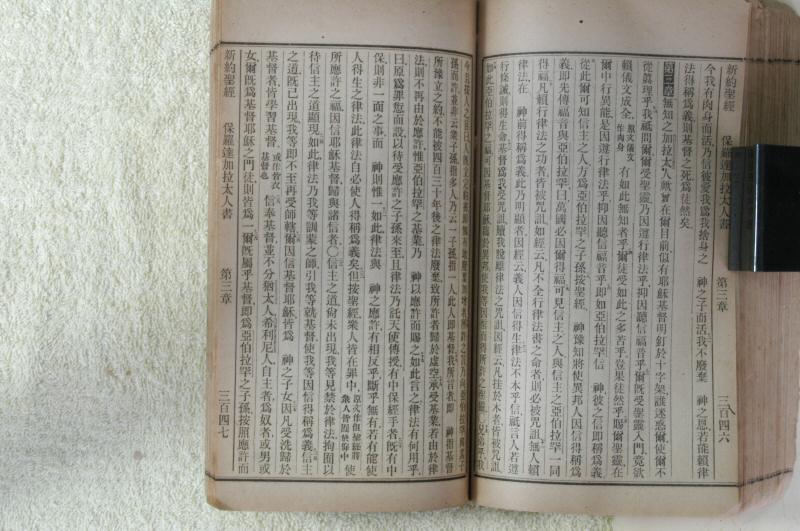 新約聖經 保羅達加拉太人書 第三章 三百四六
今我有肉身而活乃信彼愛我爲我捨身之 神之子而活我不廢棄 神之恩若能賴律
法得稱爲義則基督之死爲徒然矣
第三章 無知之加拉太人歟爾目前似有耶穌基督明釘於十字架誰迷惑爾使爾不
從眞理乎我祗問爾爾受聖靈乃因遵行律法乎抑因聽信福音乎爾旣受聖靈入門竟欲
賴儀文成全 原文儀文作肉身 有如此無知者乎爾徒受如此之多苦乎豈果徒然乎賜爾聖靈在
爾中行異能是因遵行律法乎抑因聽信福音乎卽如亞伯拉罕信 神彼之信卽稱爲義
從此爾可知信主之人方爲亞伯拉罕之子孫按聖經 神豫知將使異邦人因信得稱爲
義卽先傳福音與亞伯拉罕曰萬國必因爾得福可見信主之人與信主之亞伯拉罕一同
得福凡賴行律法之功者皆被咒詛如經云凡不全行律法書之命者則必被咒詛無人賴
律法在 神前得稱爲義此乃明顯者因經云義人因信得生律法不本乎信祗言人若遵
行條誡則得生命基督爲我受咒詛贖我脫離律法之咒詛因經云凡挂於木者皆被咒詛
新約聖經 保羅達加拉太人書 第三章 三百四七
孫而許並非云衆子孫指多人乃云一子孫指一人此人卽基督我所言者卽 神指基督
所豫立之約不能被四百三十年後之律法廢棄致所許者歸於虛空承受基業若由於律
法則不再由於應許惟亞伯拉罕之基業乃 神以應許而賜之如此言之律法有何用乎
曰原爲罪愆而設以待受應許之子孫來至且律法乃託天使傳授有中保經手者旣有中
保則非一面之事而 神則惟一如此律法與 神之應許有相反乎斷乎無有若有能使
人得生之律法此律法自必使人得稱爲義矣但按聖經衆人皆在罪中 原文作但聖經將衆人皆圈於罪中 使
所應許之福因信耶穌基督歸與諸信者○信主之道尙未出現我等見禁於律法拘囿以
待信主之道顯現如此律法乃我等訓蒙之師引我等就基督使我等因信得稱爲義信主
之道旣已出現我等卽不至再受師轄爾因信基督耶穌皆爲 神之子女因凡受洗歸於
基督者皆學習基督 或作皆衣基督也 信奉基督並不分猶太人希利尼人自主者爲奴者或男或
女爾旣爲基督耶穌之門徒則皆爲一爾旣屬乎基督卽爲亞伯拉罕之子孫按照應許而